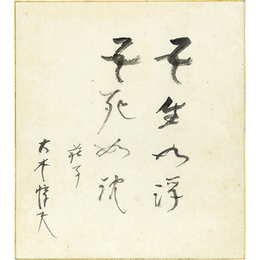 其生如浮
其死如沈
荘子
大木惇夫